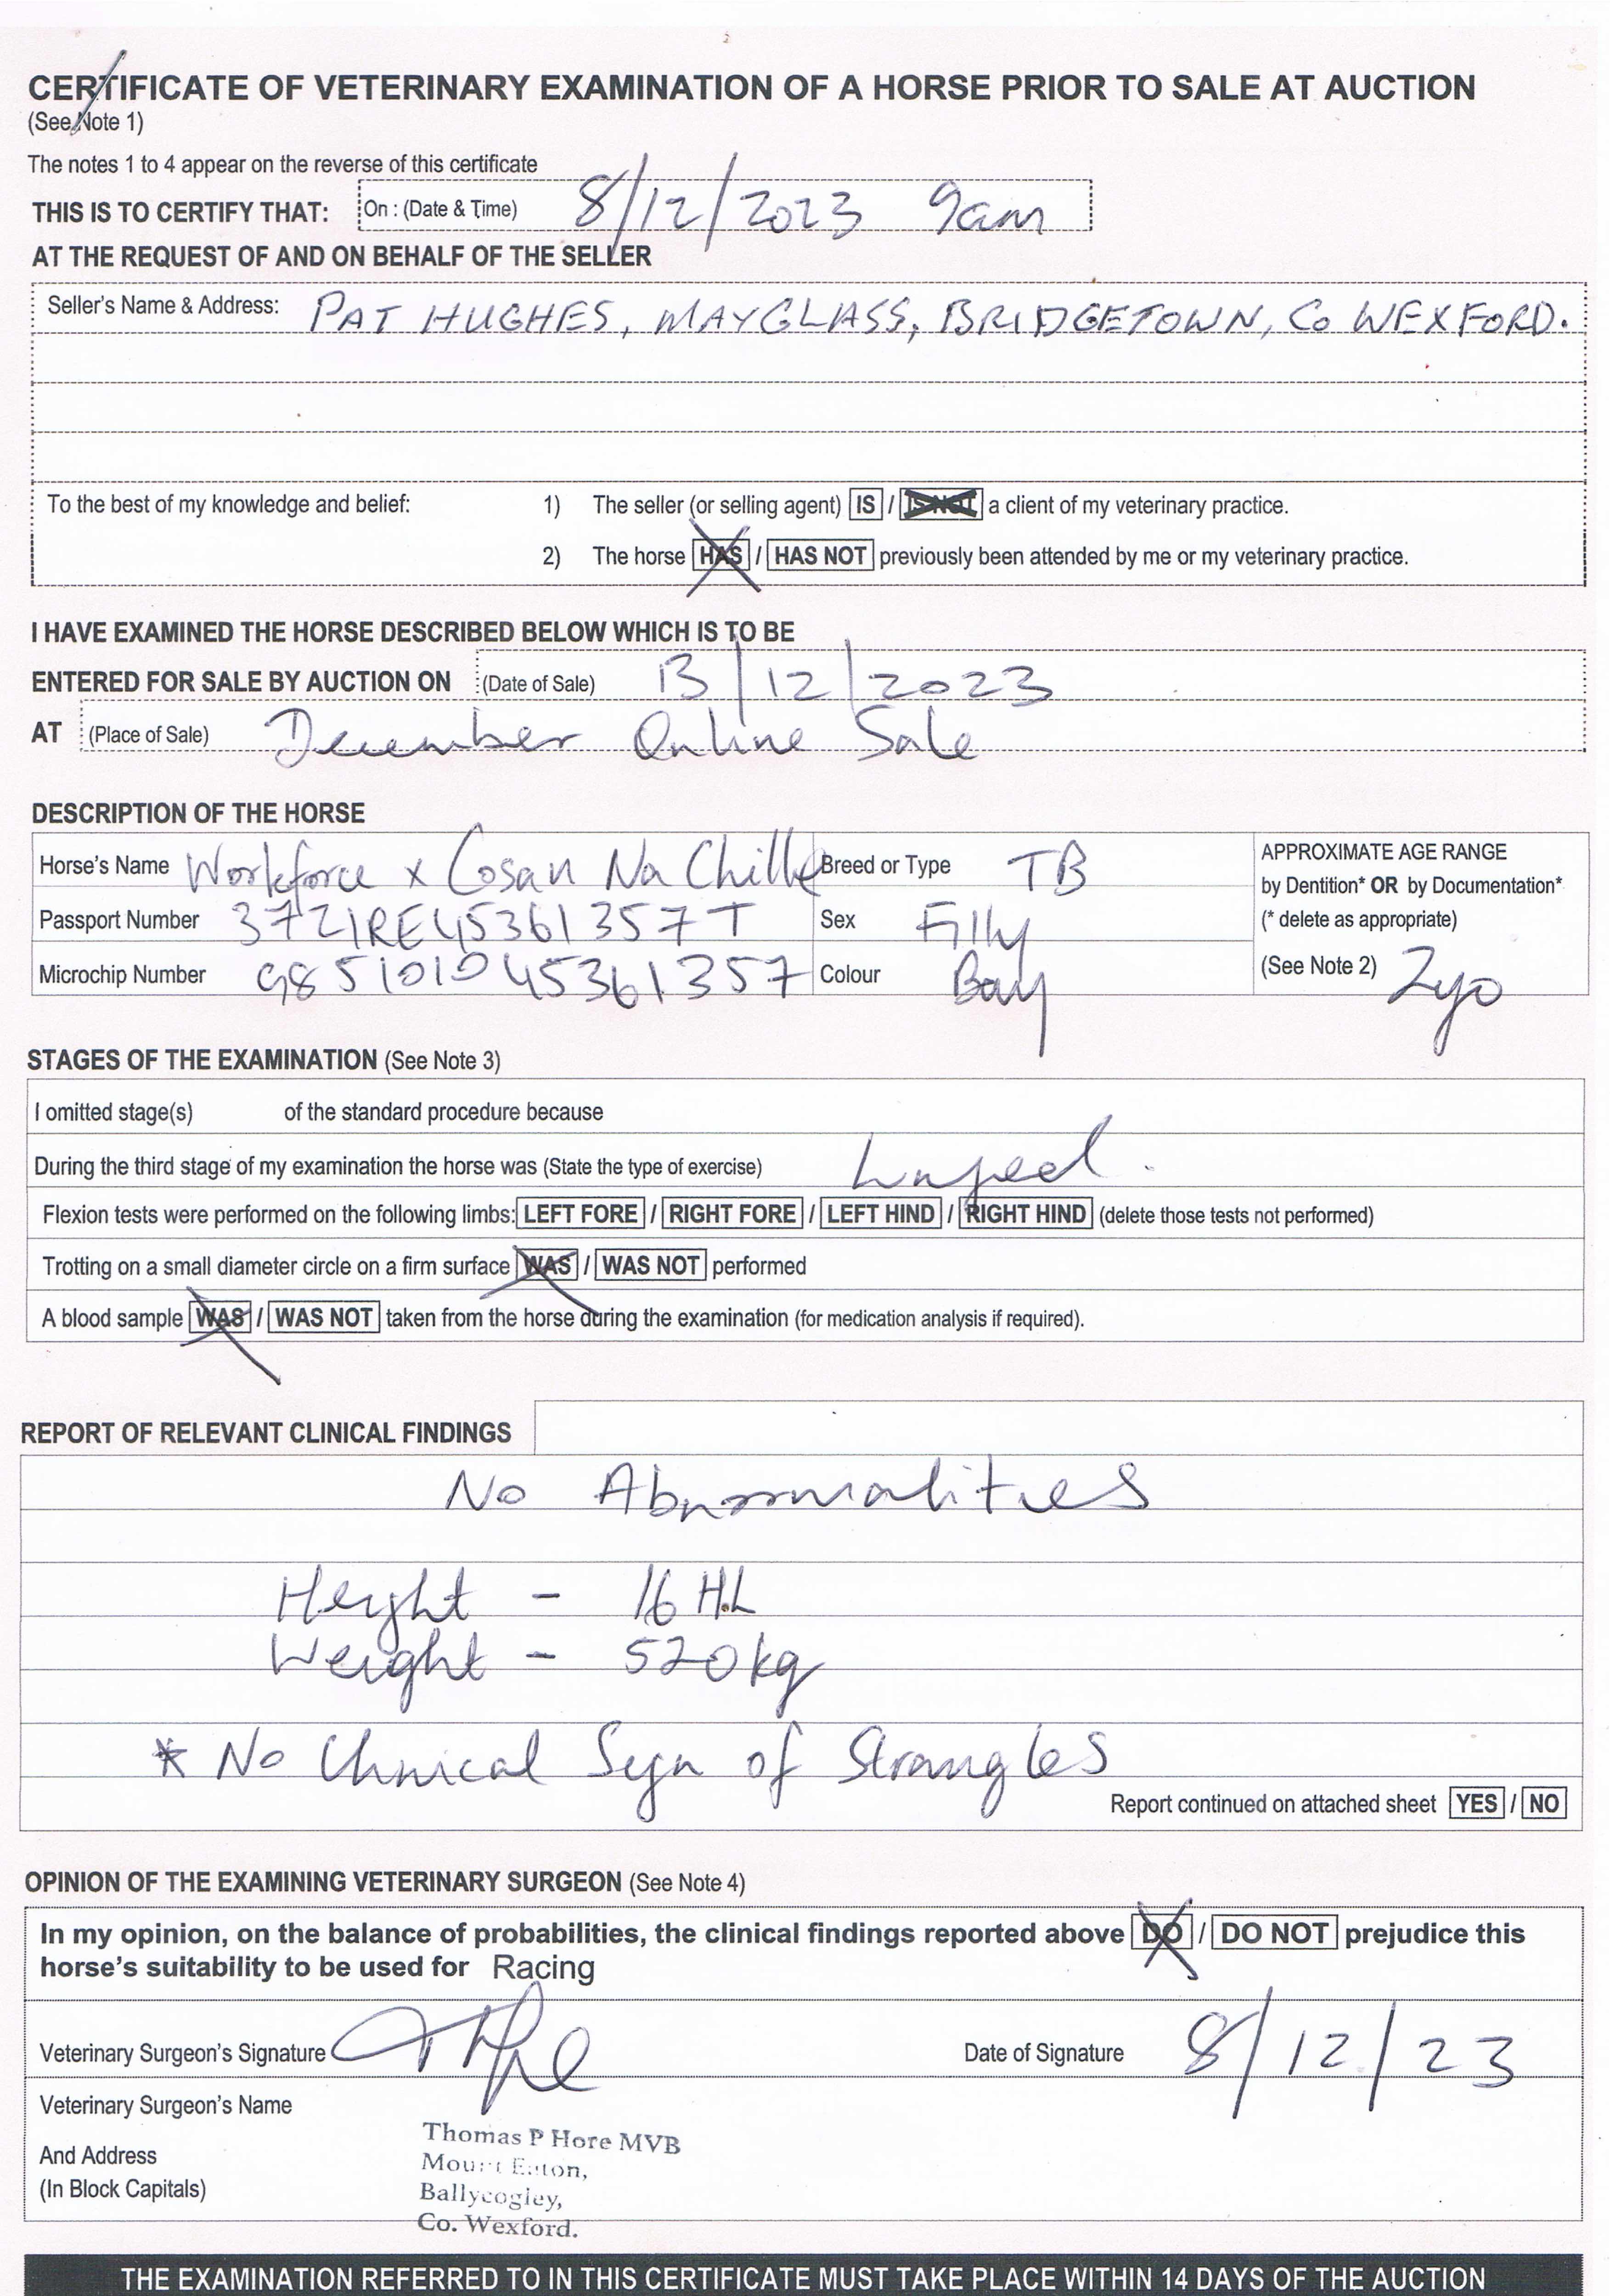 CERTIFICATE OF VETERINARY EXAMINATION OF A HORSE PRIOR TO SALE AT AUCTION
(See Note 1)
The notes 1 to 4 appear on the reverse of this certificate
THIS IS TO CERTIFY THAT: On : (Date & Time) 8/12/2023 9am
AT THE REQUEST OF AND ON BEHALF OF THE SELLER
Seller's Name & Address: PAT HUGHES, MAYGLASS, BRIDGETOWN, Co WEXFORD.
To the best of my knowledge and belief: 1) The seller (or selling agent) IS / IS NOT a client of my veterinary practice.
2) The horse HAS / HAS NOT previously been attended by me or my veterinary practice.
I HAVE EXAMINED THE HORSE DESCRIBED BELOW WHICH IS TO BE
ENTERED FOR SALE BY AUCTION ON (Date of Sale) 13/12/2023
AT (Place of Sale) December Online Sale
DESCRIPTION OF THE HORSE
Horse's Name Workforce x Cosan Na Chille Breed or Type TB
Passport Number 372IRE45361357T Sex Filly
Microchip Number 985101045361357 Colour Bay
APPROXIMATE AGE RANGE
by Dentition* OR by Documentation*
(* delete as appropriate)
(See Note 2) 2yo
STAGES OF THE EXAMINATION (See Note 3)
I omitted stage(s) of the standard procedure because
During the third stage of my examination the horse was (State the type of exercise) Lunged.
Flexion tests were performed on the following limbs: LEFT FORE / RIGHT FORE / LEFT HIND / RIGHT HIND (delete those tests not performed)
Trotting on a small diameter circle on a firm surface WAS / WAS NOT performed
A blood sample WAS / WAS NOT taken from the horse during the examination (for medication analysis if required).
REPORT OF RELEVANT CLINICAL FINDINGS
No Abnormalities
Height - 16 H.L
Weight - 520kg
* No Clinical Sign of Strangles
Report continued on attached sheet YES / NO
OPINION OF THE EXAMINING VETERINARY SURGEON (See Note 4)
In my opinion, on the balance of probabilities, the clinical findings reported above DO / DO NOT prejudice this
horse's suitability to be used for Racing
Veterinary Surgeon's Signature Date of Signature 8/12/23
Veterinary Surgeon's Name
And Address
(In Block Capitals)
Thomas P Hore MVB
Mount Eaton,
Ballycogley,
Co. Wexford.
THE EXAMINATION REFERRED TO IN THIS CERTIFICATE MUST TAKE PLACE WITHIN 14 DAYS OF THE AUCTION